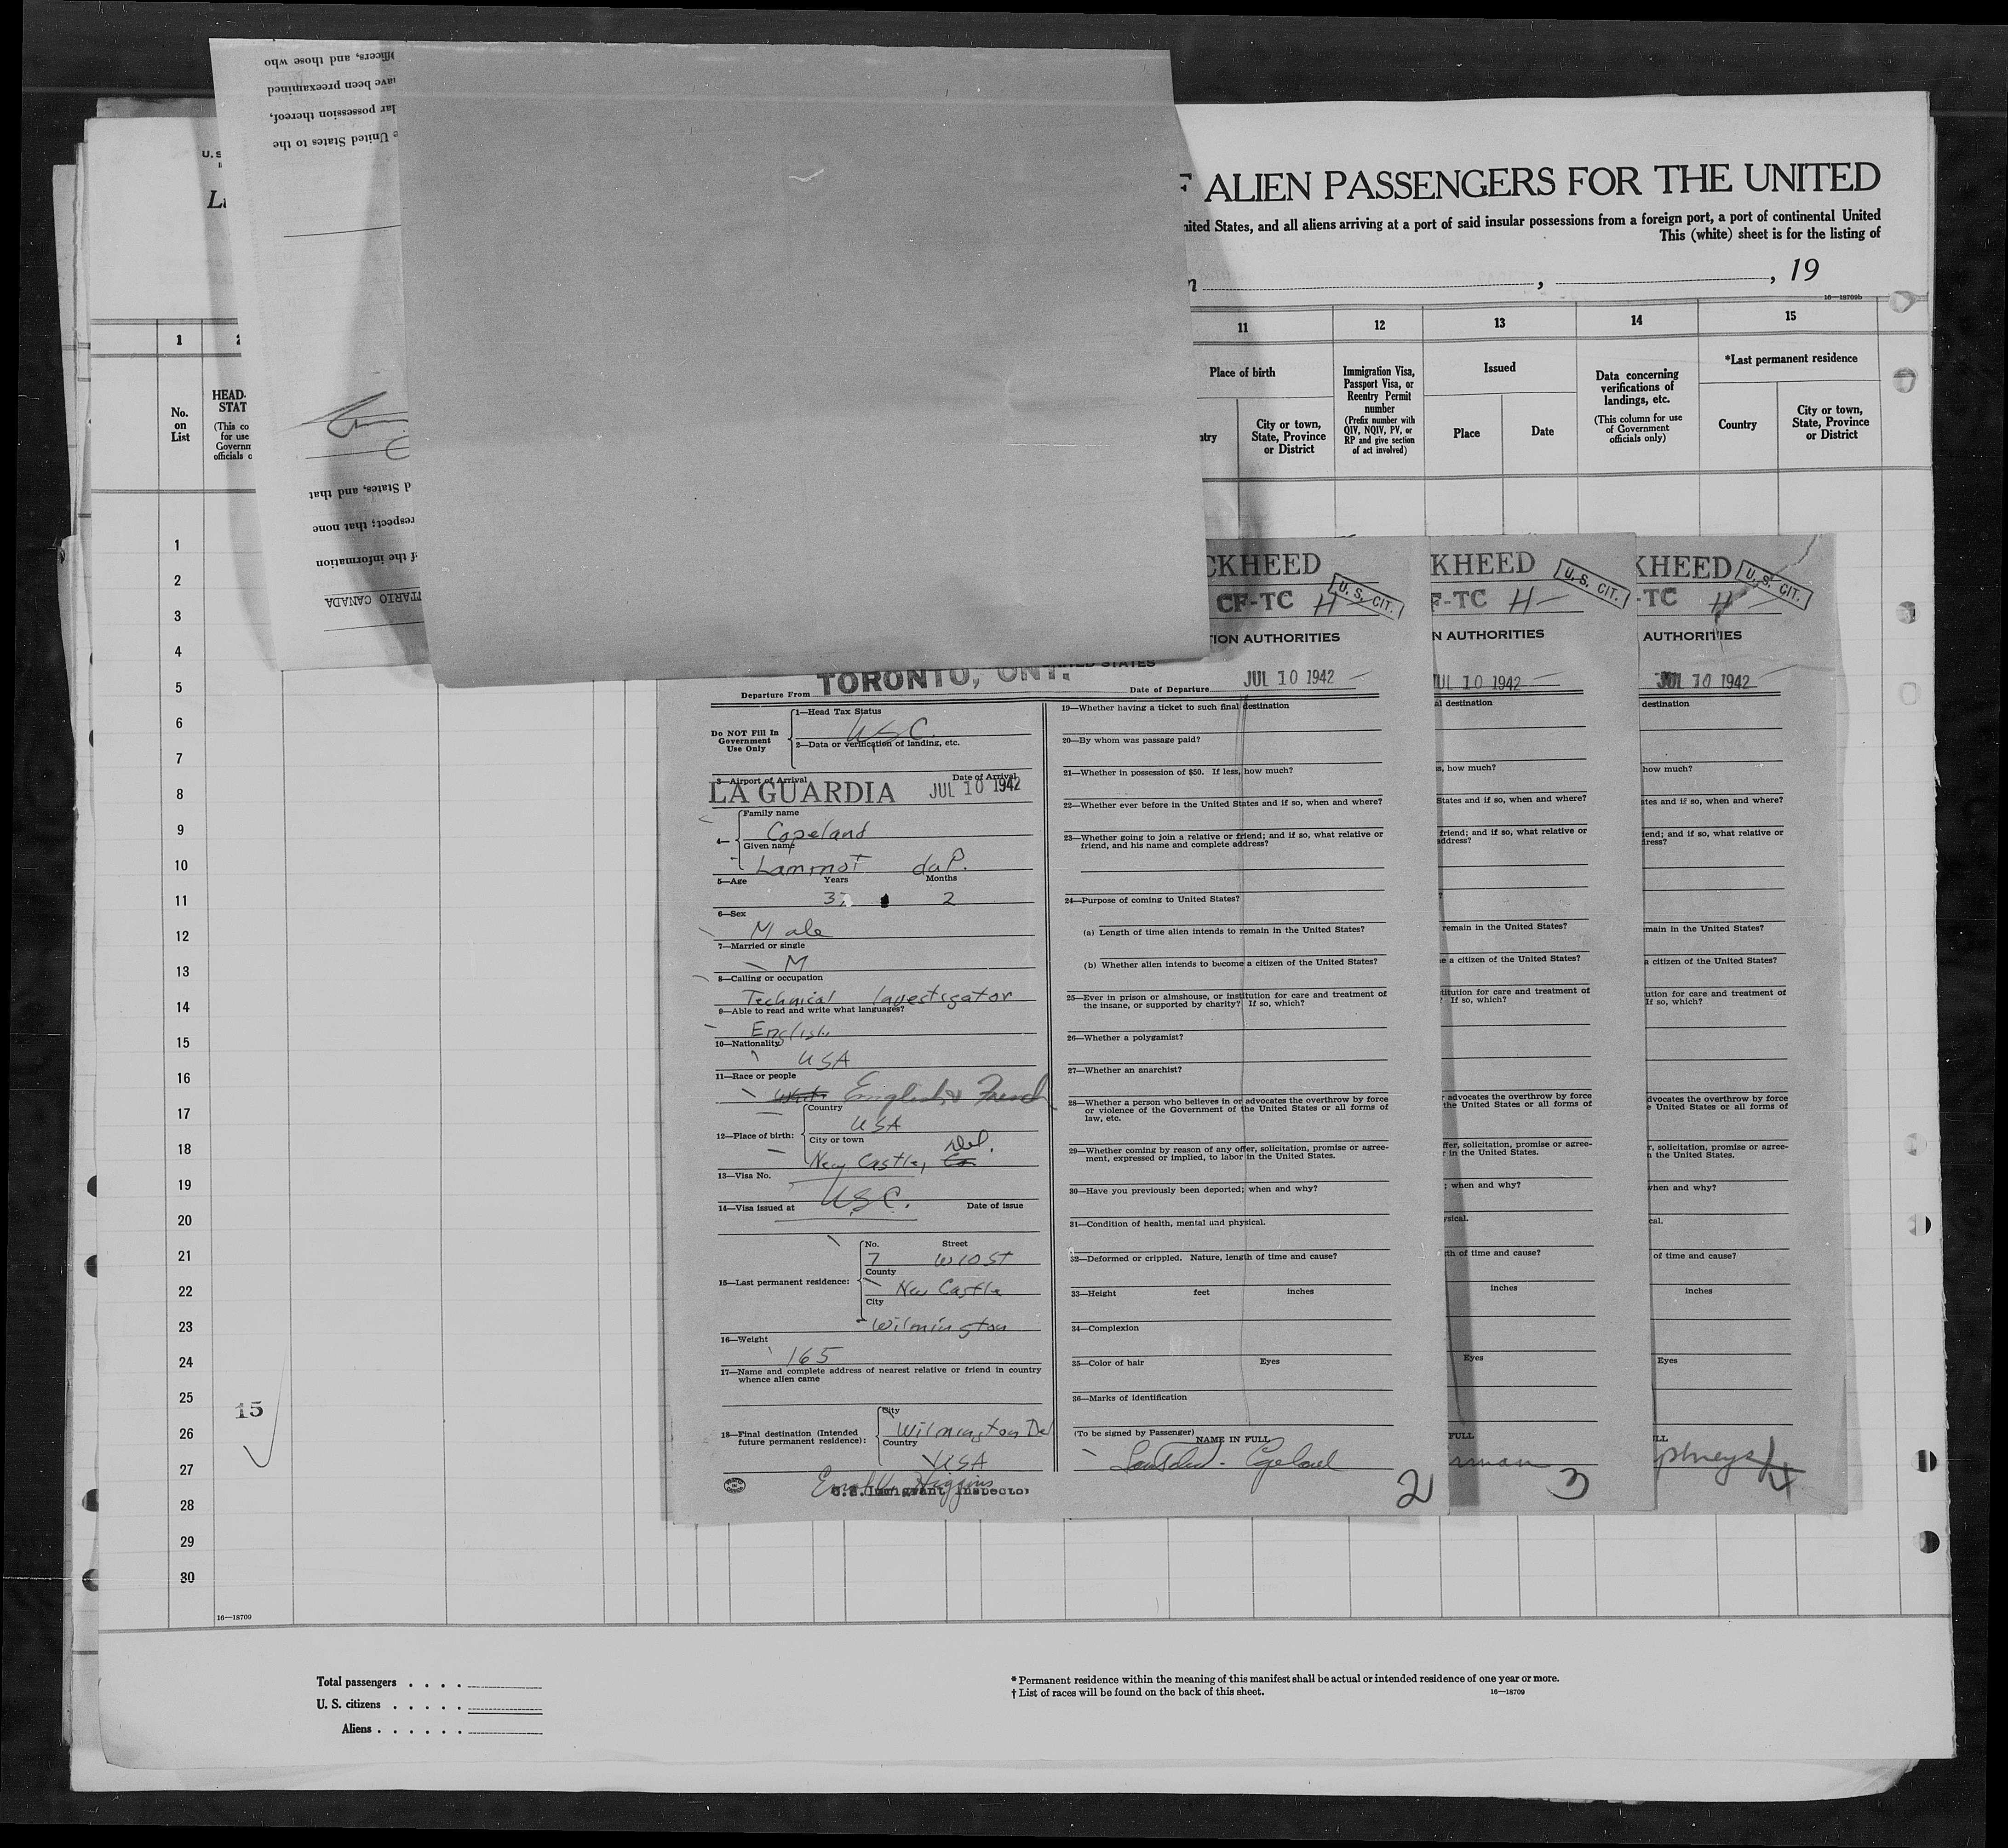 officers, and those who
have been preexamined
possession thereof,
United States to the
d States, and that
respect; that none
of the information
TARIO CANADA
U.S
ALIEN PASSENGERS FOR THE UNITED
United States, and all aliens arriving at a port of said insular possessions from a foreign port, a port of continental United
This (white) sheet is for the listing of
, , 19
16—18709b
1
11 12 13 14 15
No. on List
HEAD-
STAT
(This co
for use
Governm
officials c
Place of birth
City or town, State, Province or District
Immigration Visa, Passport Visa, or Reentry Permit number
(Prefix number with QIV, NQIV, PV, or RP and give section of act involved)
Issued
Place Date
Data concerning verifications of landings, etc.
(This column for use of Government officials only)
*Last permanent residence
Country
City or town, State, Province or District
1
2
3
4
5
6
7
8
9
10
11
12
13
14
15
16
17
18
19
20
21
22
23
24
25
26
27
28
29
30
15
16—18709
CKHEED
U. S. CIT.
CF-TC H
TION AUTHORITIES
UNITED STATES
Departure From TORONTO, ONT. Date of Departure JUL 10 1942
Do NOT Fill In Government Use Only
1—Head Tax Status
USC.
2—Data or verification of landing, etc.
3—Airport of Arrival Date of Arrival
LA GUARDIA JUL 10 1942
4—
Family name
Copeland
Given name
Lammot duP.
5—Age Years Months
37 2
6—Sex
Male
7—Married or single
M
8—Calling or occupation
Technical Investigator
9—Able to read and write what languages?
English
10—Nationality
USA
11—Race or people
White English & French
12—Place of birth:
Country
USA
City or town
New Castle, Co Del.
13—Visa No.
USC.
14—Visa issued at Date of issue
15—Last permanent residence:
No. Street
7 W 10 St
County
New Castle
City
Wilmington
16—Weight
165
17—Name and complete address of nearest relative or friend in country whence alien came
18—Final destination (Intended future permanent residence):
City
Wilmington Del
Country
USA
Higgins
U.S. Immigrant Inspector
19—Whether having a ticket to such final destination
20—By whom was passage paid?
21—Whether in possession of $50. If less, how much?
22—Whether ever before in the United States and if so, when and where?
23—Whether going to join a relative or friend; and if so, what relative or
friend, and his name and complete address?
24—Purpose of coming to United States?
(a) Length of time alien intends to remain in the United States?
(b) Whether alien intends to become a citizen of the United States?
25—Ever in prison or almshouse, or institution for care and treatment of
the insane, or supported by charity? If so, which?
26—Whether a polygamist?
27—Whether an anarchist?
28—Whether a person who believes in or advocates the overthrow by force
or violence of the Government of the United States or all forms of
law, etc.
29—Whether coming by reason of any offer, solicitation, promise or agree-
ment, expressed or implied, to labor in the United States.
30—Have you previously been deported; when and why?
31—Condition of health, mental and physical.
32—Deformed or crippled. Nature, length of time and cause?
33—Height feet inches
34—Complexion
35—Color of hair Eyes
36—Marks of identification
(To be signed by Passenger)
NAME IN FULL
Copeland
2
KHEED
U. S. CIT.
F-TC H
N AUTHORITIES
JUL 10 1942
al destination
s, how much?
States and if so, when and where?
friend; and if so, what relative or
address?
remain in the United States?
e a citizen of the United States?
titution for care and treatment of
? If so, which?
r advocates the overthrow by force
the United States or all forms of
ffer, solicitation, promise or agree-
r in the United States.
; when and why?
ysical.
th of time and cause?
inches
Eyes
FULL
rman
3
KHEED
U. S. CIT.
-TC H
AUTHORITIES
JUL 10 1942
destination
how much?
tes and if so, when and where?
iend; and if so, what relative or
dress?
main in the United States?
a citizen of the United States?
ution for care and treatment of
If so, which?
dvocates the overthrow by force
e United States or all forms of
r, solicitation, promise or agree-
n the United States.
when and why?
cal.
of time and cause?
inches
Eyes
LL
phreys
4
Total passengers . . . .
U. S. citizens . . . . .
Aliens . . . . . .
* Permanent residence within the meaning of this manifest shall be actual or intended residence of one year or more.
† List of races will be found on the back of this sheet.
16—18709